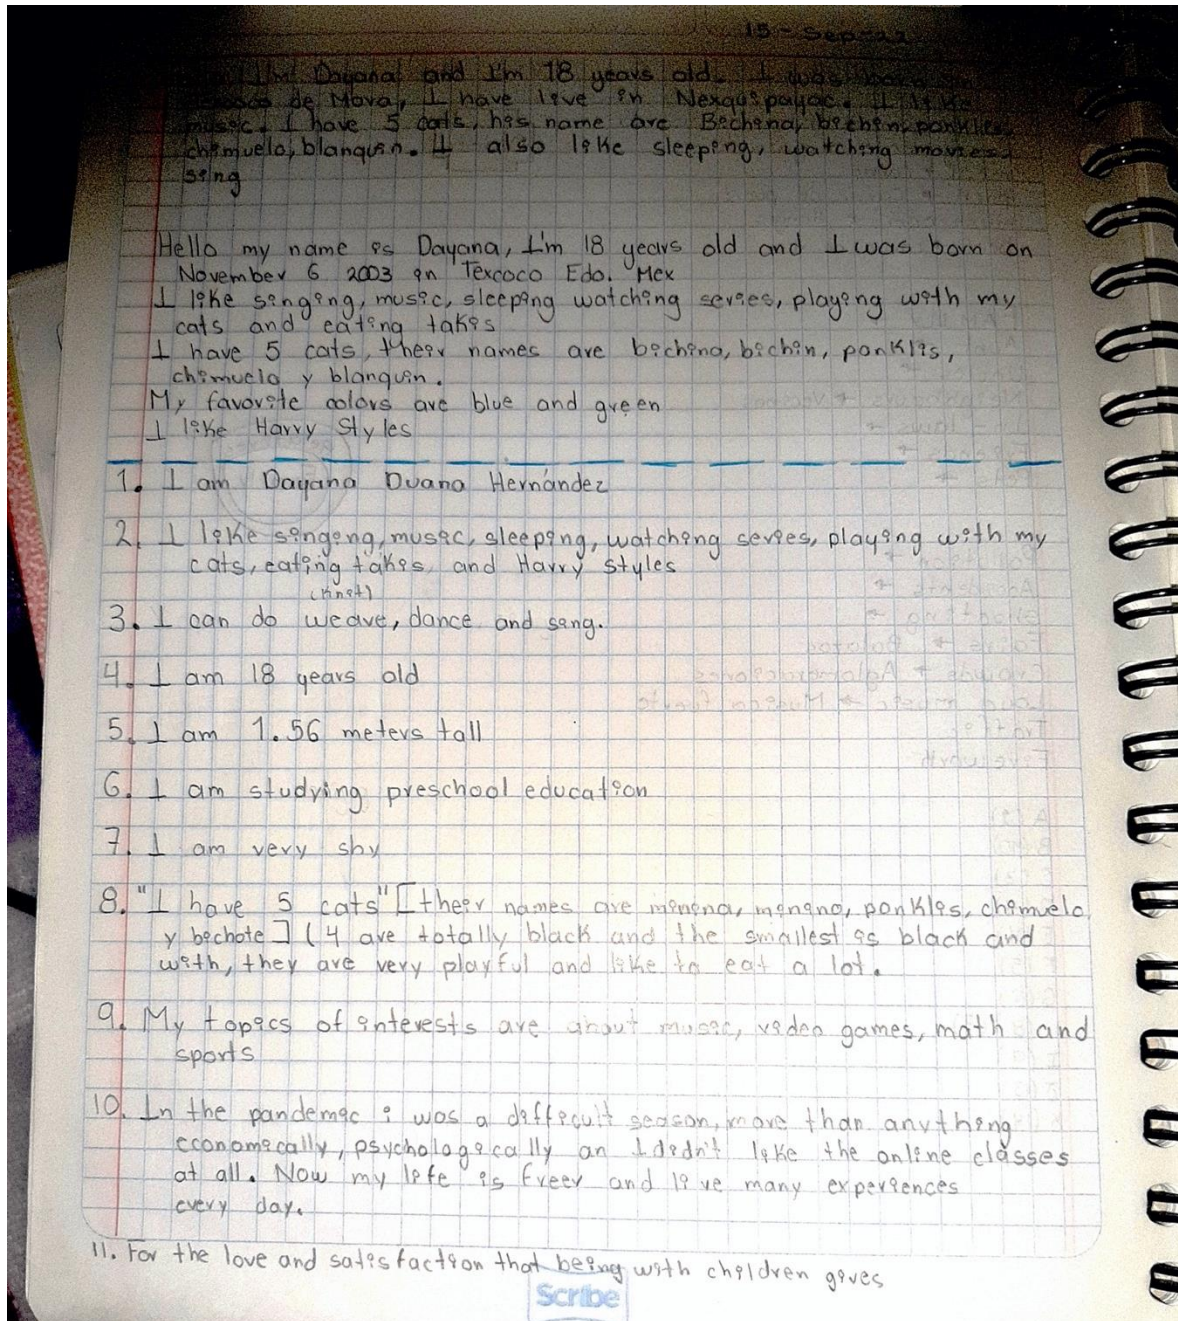 15 - Sep-22
I'm Dayana and I'm 18 years old. I was born
de Mora, I have live in Nexquipayac. I like
music. I have 5 cats, his name are Bichina, bichin, ponklis,
chimuelo, blanquin. I also like sleeping, watching movies
sing
Hello my name is Dayana, I'm 18 years old and I was born on
November 6 2003 in Texcoco Edo. Mex
I like singing, music, sleeping watching series, playing with my
cats and eating takis
I have 5 cats, their names are bichina, bichin, ponklis,
chimuelo y blanquin.
My favorite colors are blue and green
I like Harry Styles
1. I am Dayana Duana Hernández
2. I like singing, music, sleeping, watching series, playing with my
cats, eating takis and Harry styles
(knit)
3. I can do weave, dance and sing.
4. I am 18 years old
5. I am 1.56 meters tall
6. I am studying preschool education
7. I am very shy
8. "I have 5 cats" [their names are minina, minino, ponklis, chimuelo
y bichote] (4 are totally black and the smallest is black and
with, they are very playful and like to eat a lot.
9. My topics of interests are about music, video games, math and
sports
10. In the pandemic i was a difficult season, more than anything
economically, psychologically an I didn't like the online classes
at all. Now my life is freer and live many experiences
every day.
11. For the love and satisfaction that being with children gives
Scribe